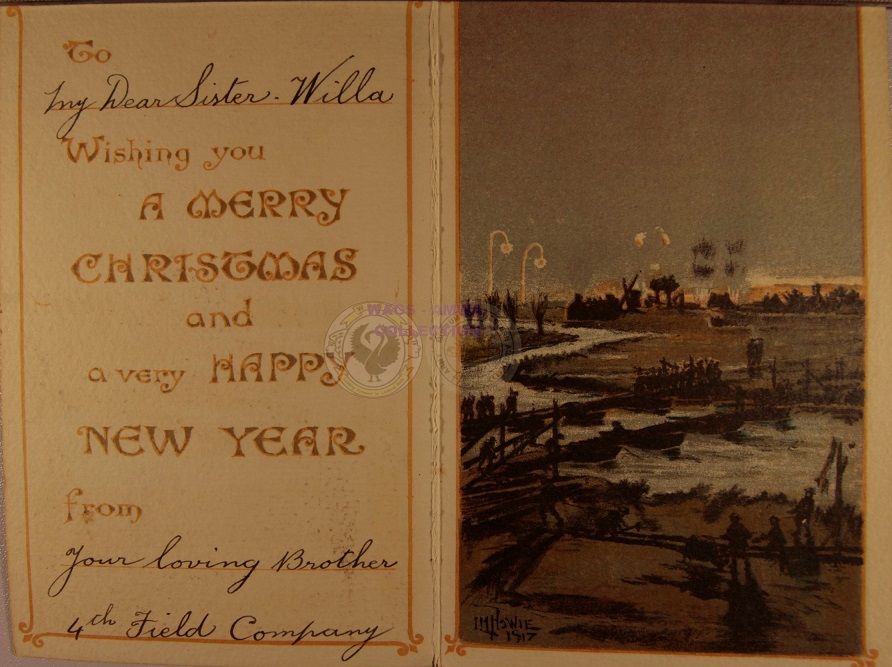 To
My Dear Sister. Willa
Wishing you
A MERRY
CHRISTMAS
and
a very HAPPY
NEW YEAR
from
Your loving Brother
4th Field Company
WAGS ANMM
COLLECTION
1917